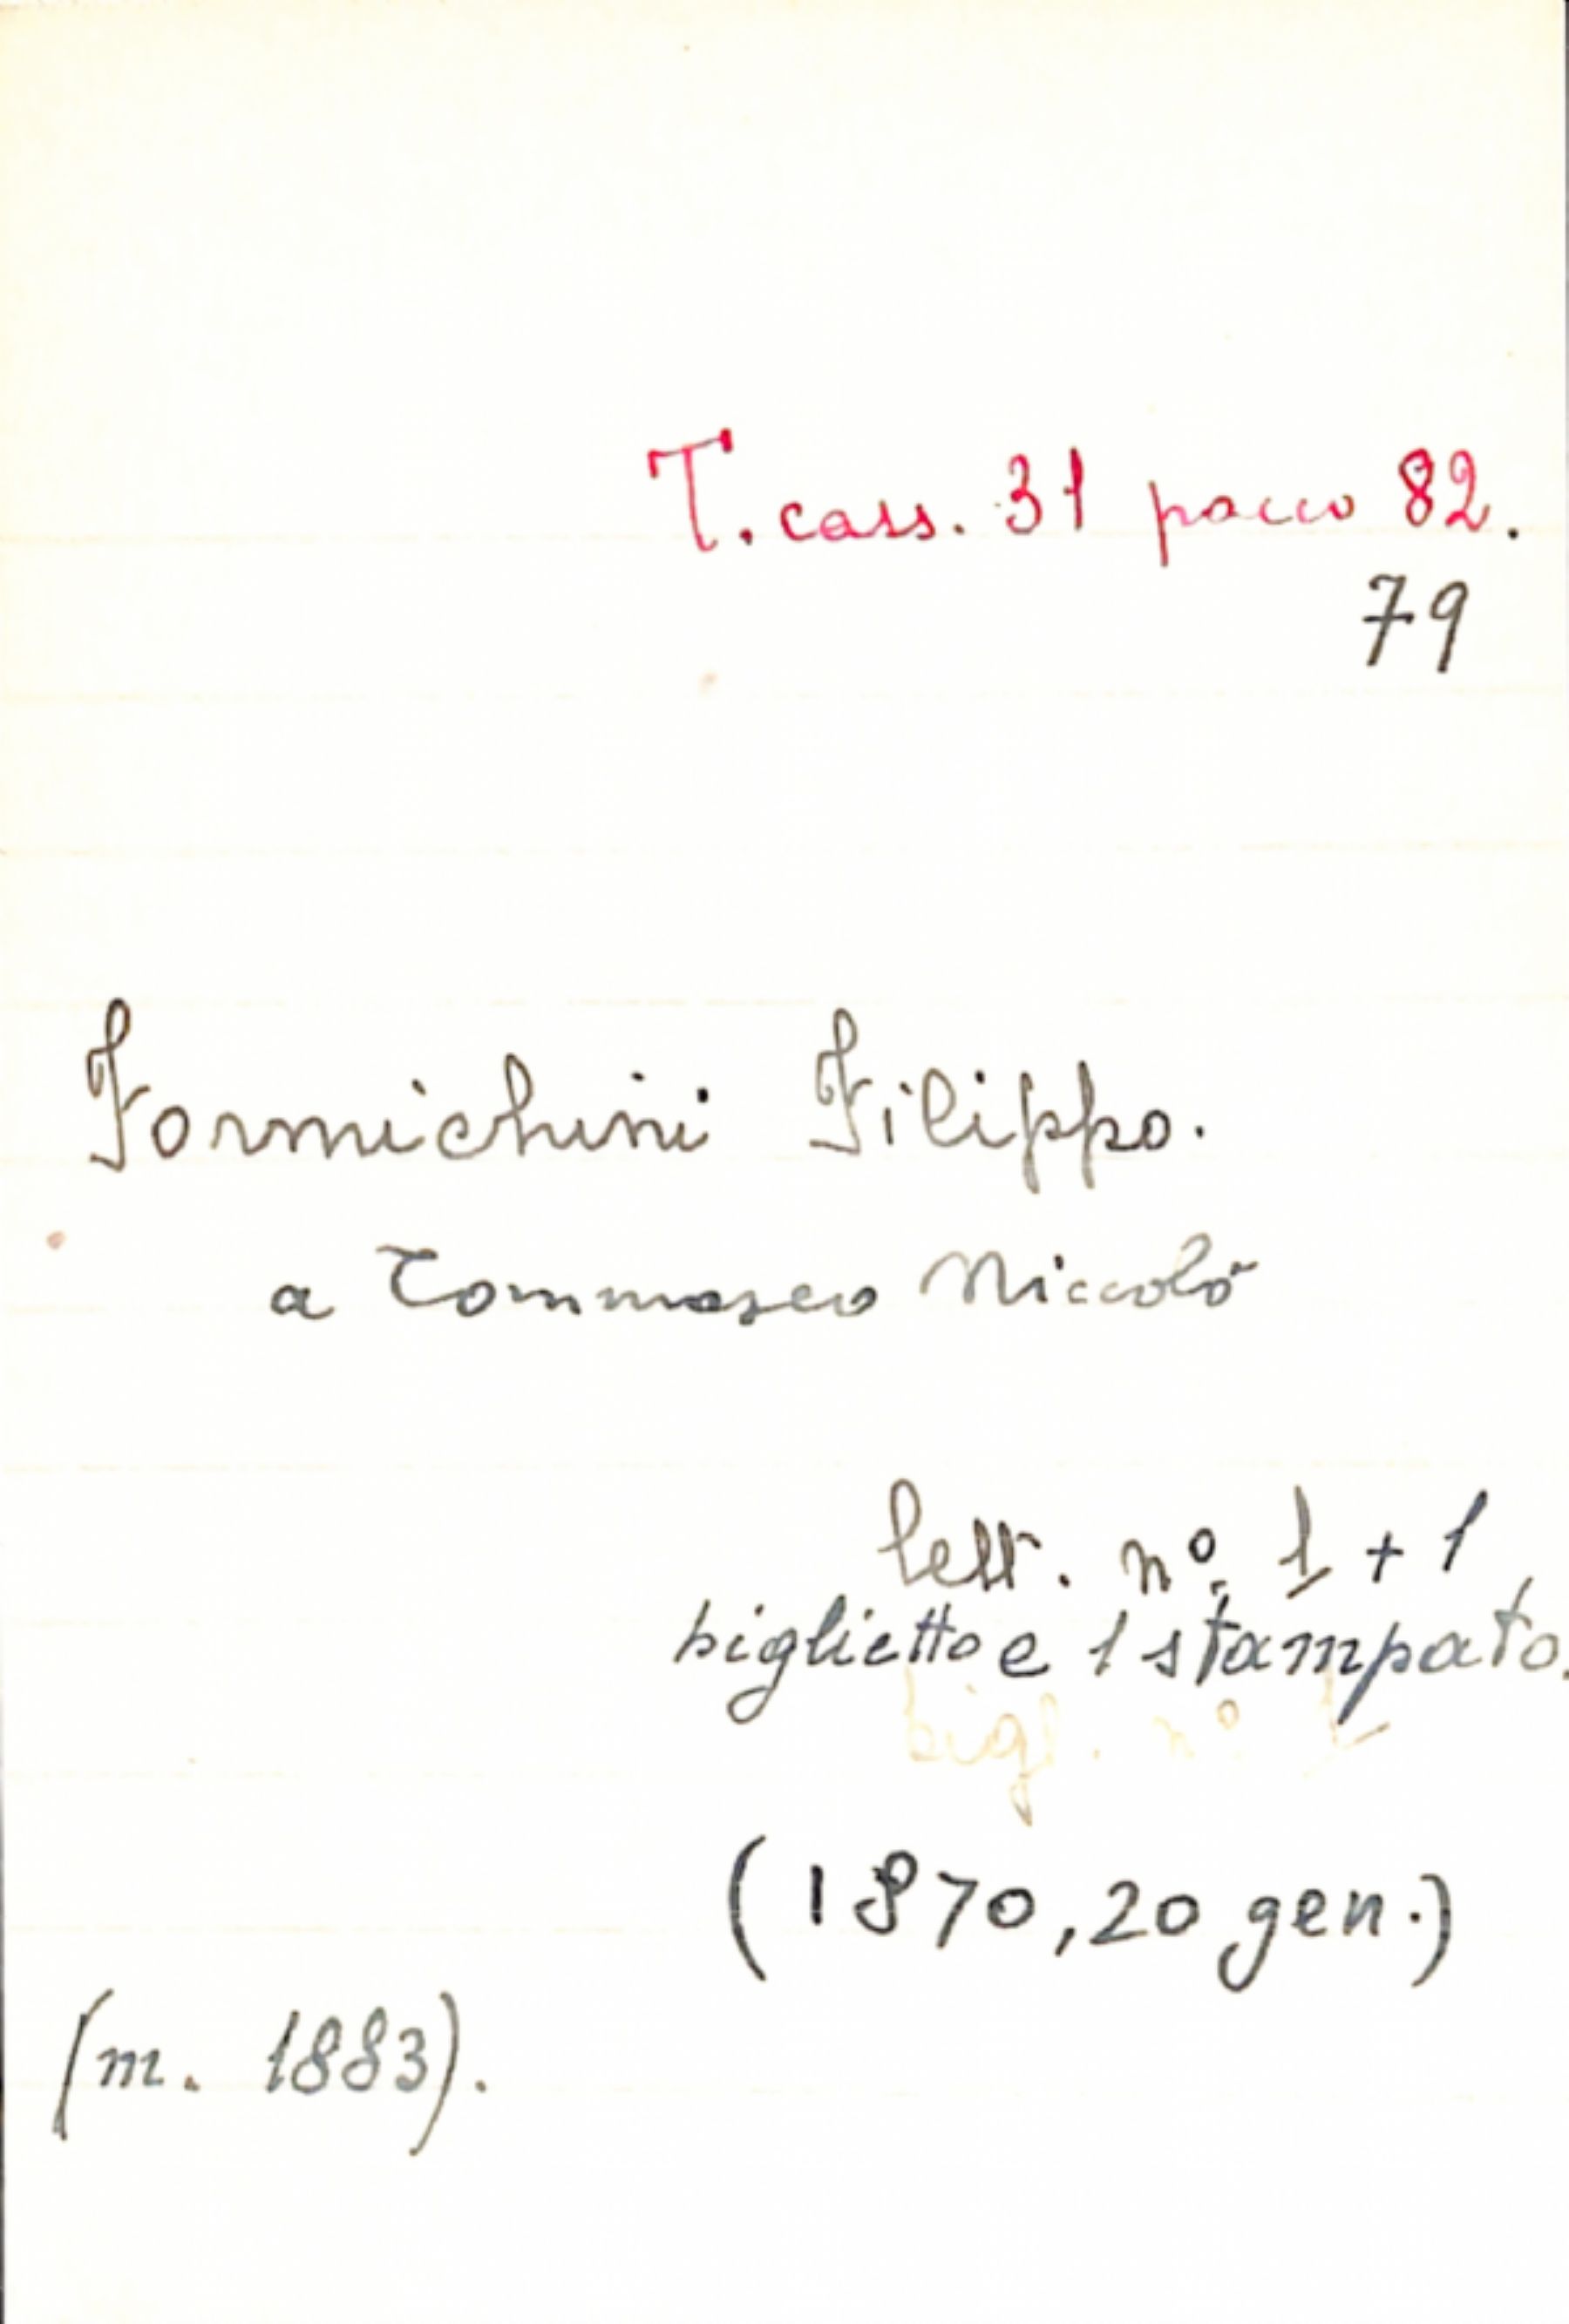 T. cass. 31 pacco 82.
79
Formichini Filippo.
a Tommaseo Niccolò
lett. nº 1 + 1
biglietto e 1 stampato.
bigl. nº 1
(1870, 20 gen.)
(m. 1883).